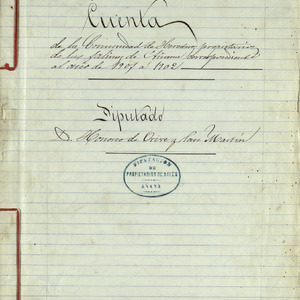 Cuenta
de la Comunidad de Herederos propietarios
de las Salinas de Añana correspondiente
al año de 1901 á 1902
Diputado
D. Honorio de Orive y San Martín
DIPUTACION
DE
PROPIETARIOS DE SALES
AÑANA